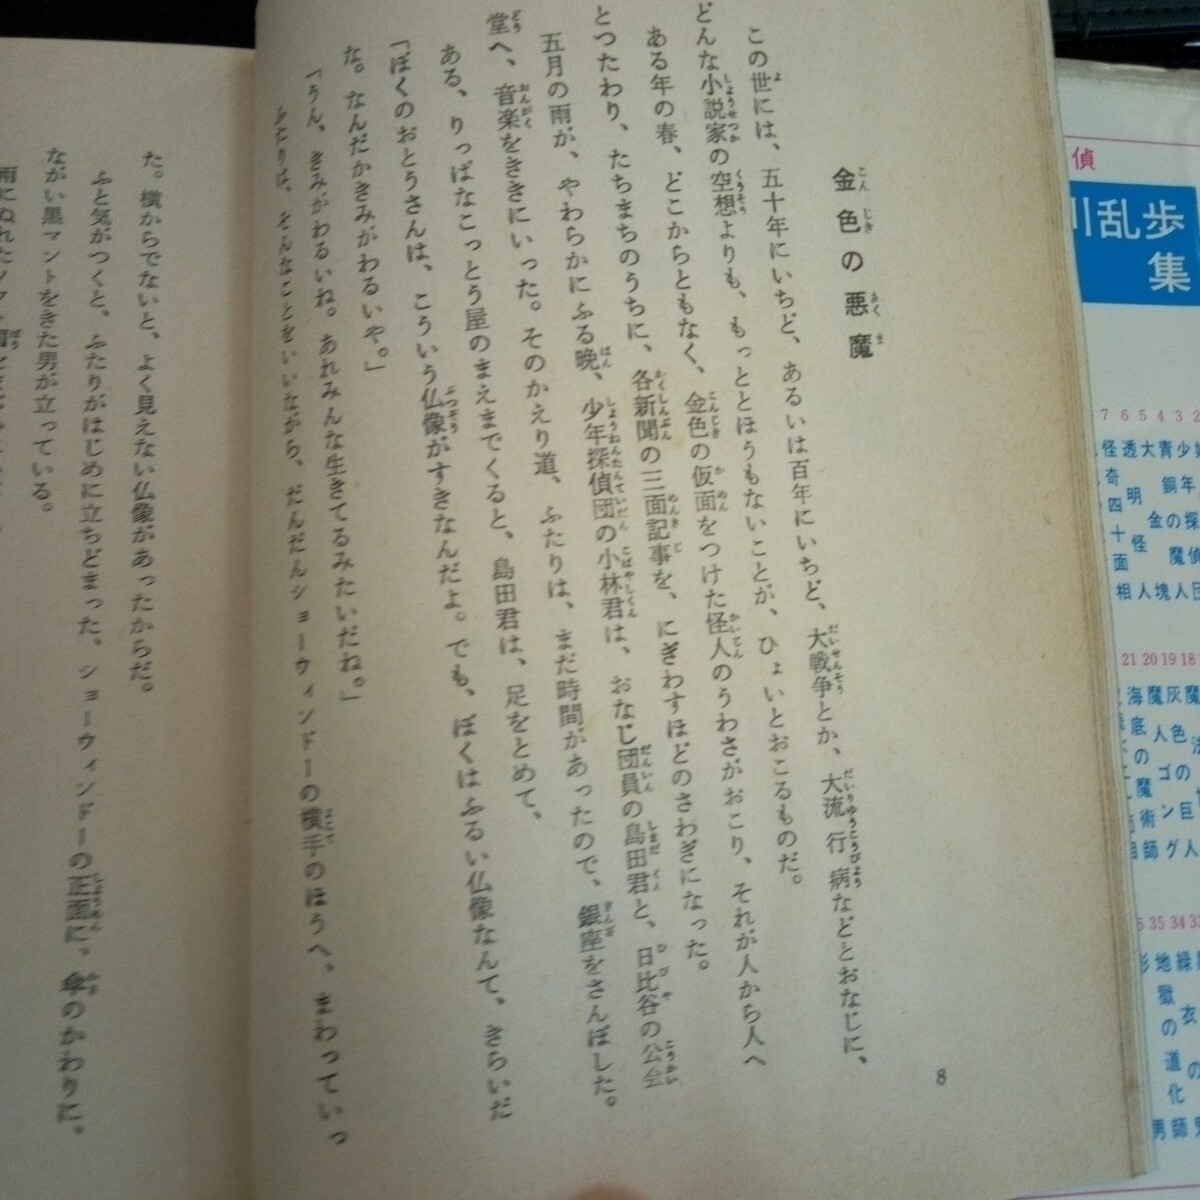 金色の悪魔
この世には、五十年にいちど、あるいは百年にいちど、大戦争とか、大流行病などとおなじに、
どんな小説家の空想よりも、もっととほうもないことが、ひょいとおこるものだ。
ある年の春、どこからともなく、金色の仮面をつけた怪人のうわさがおこり、それが人から人へ
とつたわり、たちまちのうちに、各新聞の三面記事を、にぎわすほどのさわぎになった。
五月の雨が、やわらかにふる晩、少年探偵団の小林君は、おなじ団員の島田君と、日比谷の公会
堂へ、音楽をききにいった。そのかえり道、ふたりは、まだ時間があったので、銀座をさんぽした。
ある、りっぱなこっとう屋のまえまでくると、島田君は、足をとめて、
「ぼくのおとうさんは、こういう仏像がすきなんだよ。でも、ぼくはふるい仏像なんて、きらいだ
な。なんだかきみがわるいや。」
「うん、きみがわるいね。あれみんな生きてるみたいだね。」
ふたりは、そんなことをいいながら、だんだんショーウィンドーの横手のほうへ、まわっていっ
8
た。横からでないと、よく見えない仏像があったからだ。
ふと気がつくと、ふたりがはじめに立ちどまった、ショーウィンドーの正面に、傘のかわりに、
ながい黒マントをきた男が立っている。
雨にぬれたソフト帽
偵
川乱歩
集
7 6 5 4 3 2
怪奇四十面相
透明怪人
大金塊
青銅の魔人
少年探偵団
21 20 19 18
海底の魔術師
魔人ゴング
灰色の巨人
35 34 33
地獄の道化師
緑衣の